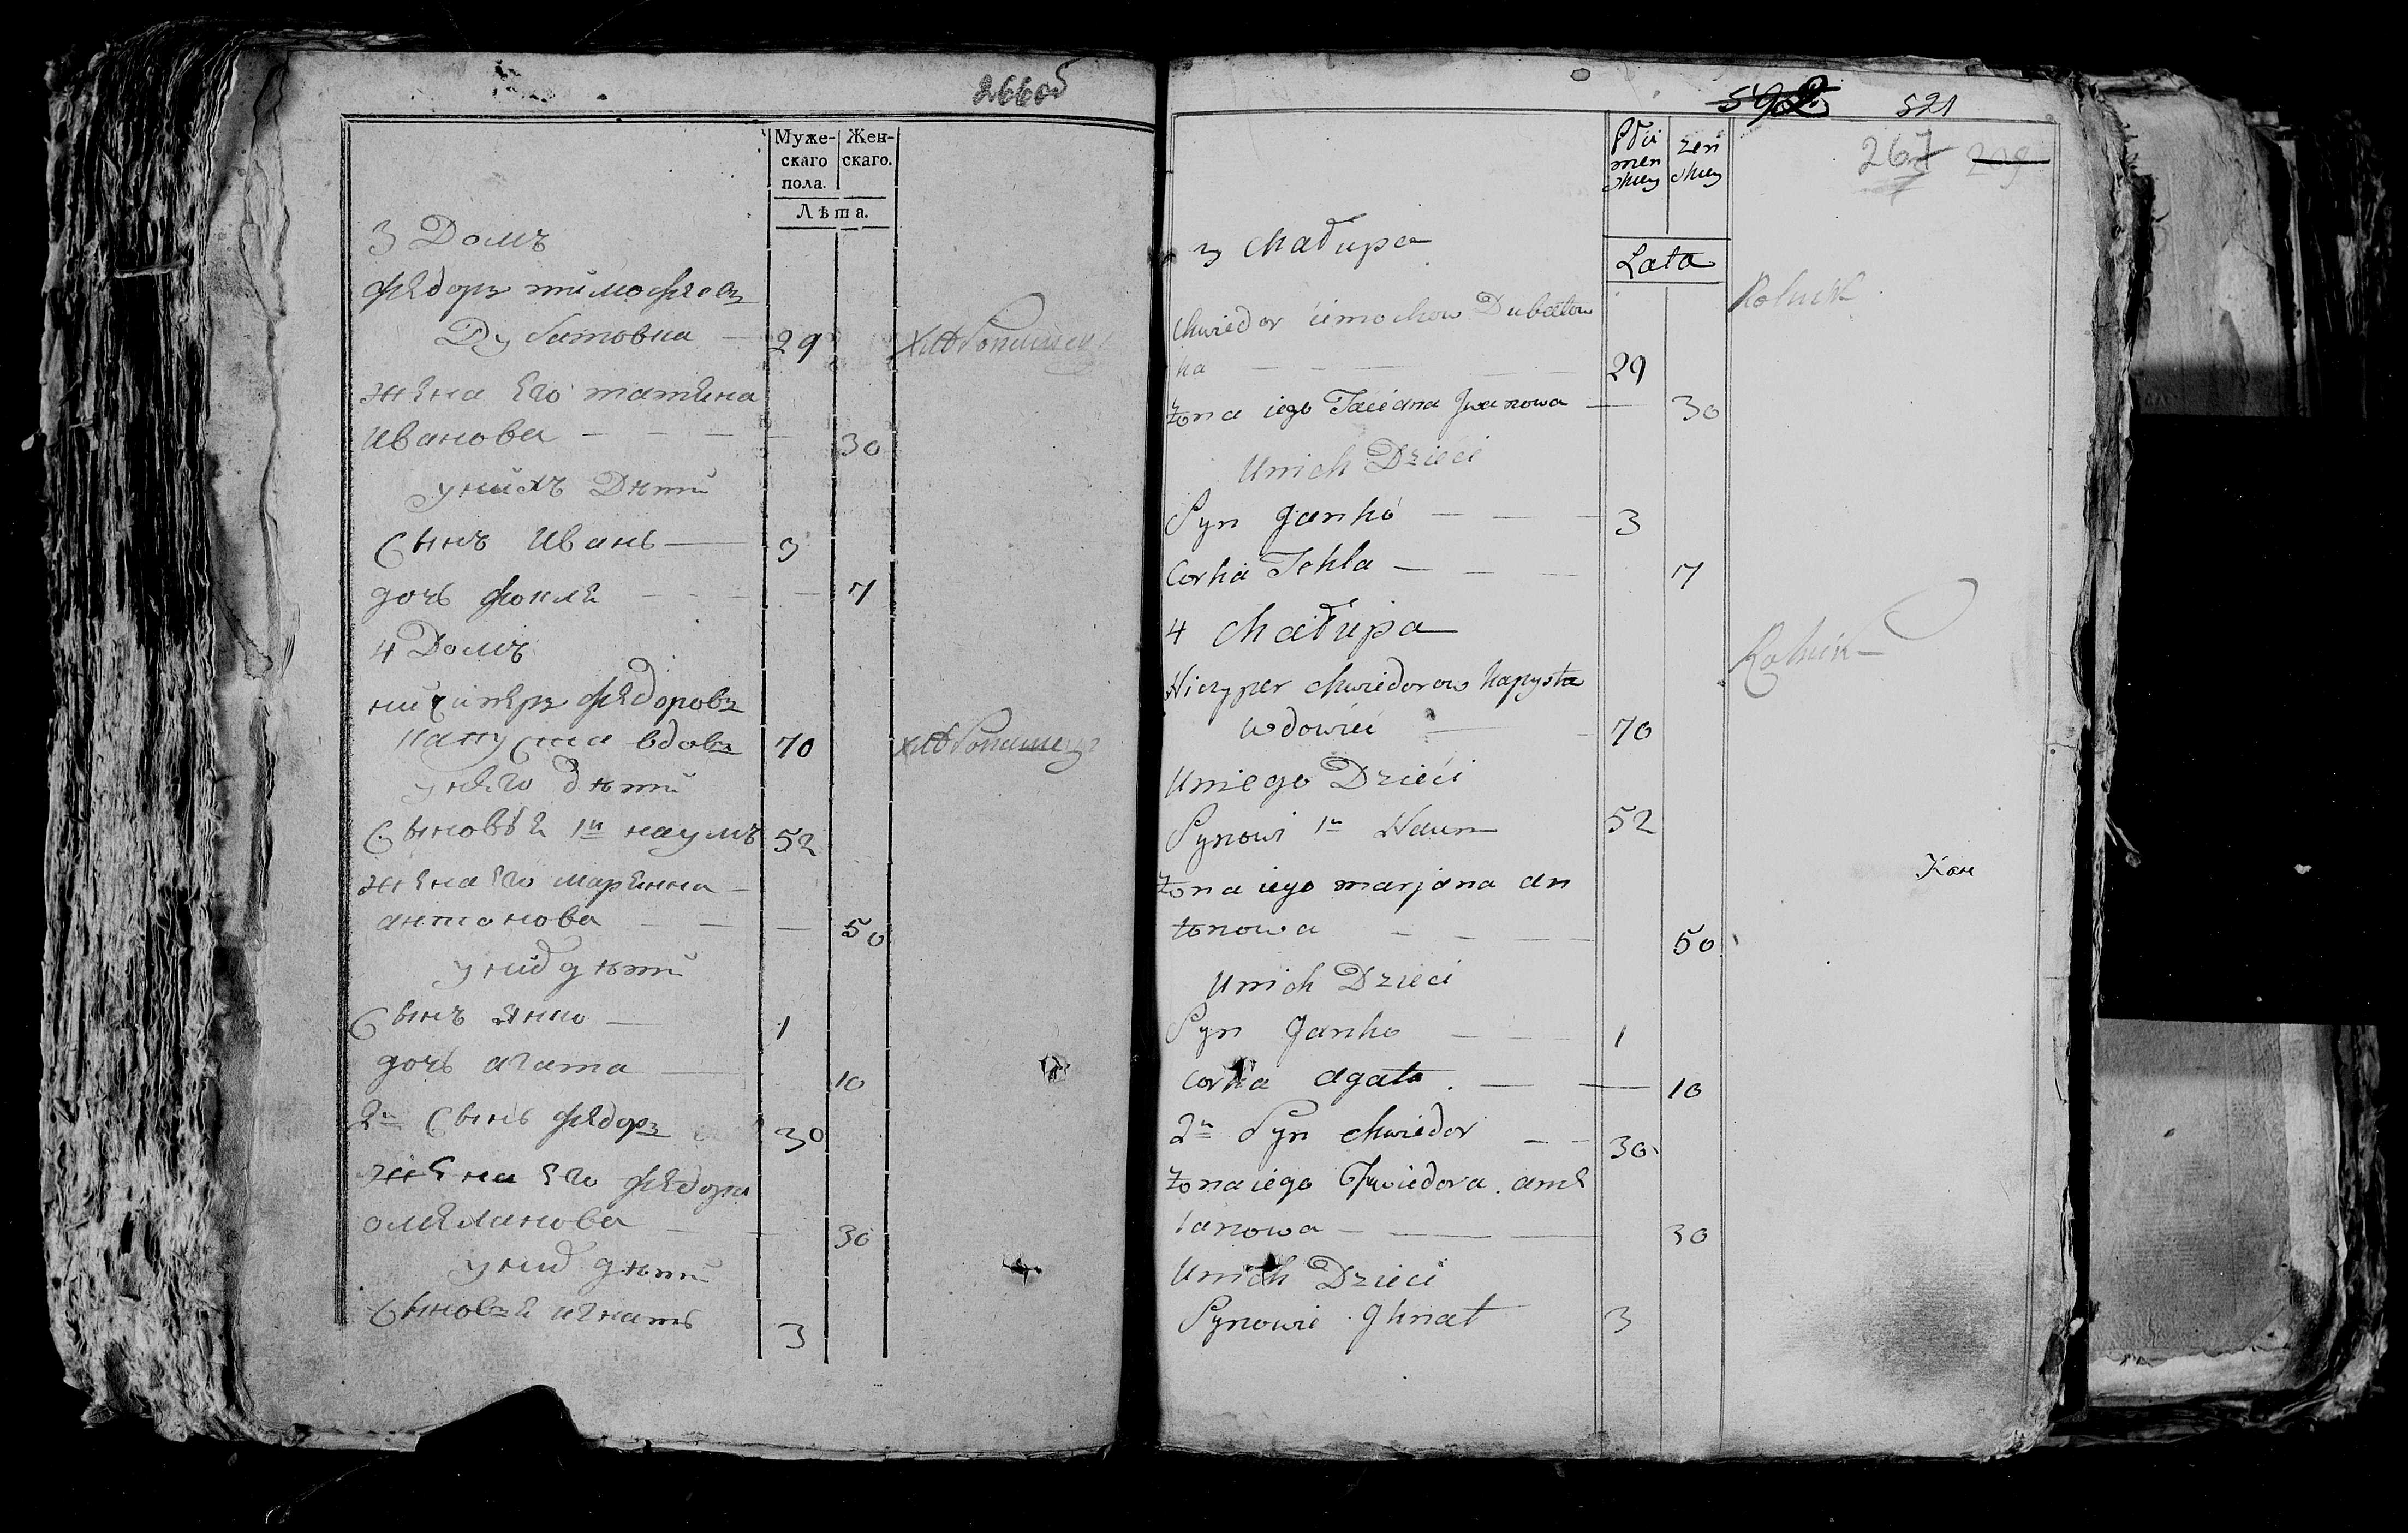 266об
Муже-
скаго
пола.
Жен-
скаго.
Лѣта.
3 Домъ
Федоръ тимофеевъ
Дубатовка 29 хлѣбопашецъ
жена его татяна
Иванова 30
у нихъ Дѣти
Сынъ Иванъ 3
дочь фокля 7
4 Домъ
ничиперъ федоровъ
капуста вдовъ 70 хлѣбопашецъ
у него дѣти
Сыновѣя 1й наумъ 52
жена его марянна
антонова 50
у них дѣти
Сынъ янко 1
дочь агата 10
2й Сынъ федоръ 30
жена его федора
омеляанова 30
у них дѣти
Сыновъя игнатъ 3
592 521
267 209
Płci
men
skiey
żeń
skiey
Lata
3 Chałupa
Rolnik
Chwiedor cimochow Dubatow
ka 29
żona iego Taciana Jwanowa 30
Unich Dzieci
Syn Janko 3
Corka Tekla 7
4 Chałupa
Rolnik
Niczyper chwiedorow kapysta
wdowiec 70
Uniego Dzieci
Synowi 1n Naum 52
żona iego marjana an
Кон
tonowa 50
Unich Dzieci
Syn Janko 1
corka agata 10
2n Syn chwiedor 30
żona iego Chwiedora ame
lanowa 30
Unich Dzieci
Synowie Jhnat 3